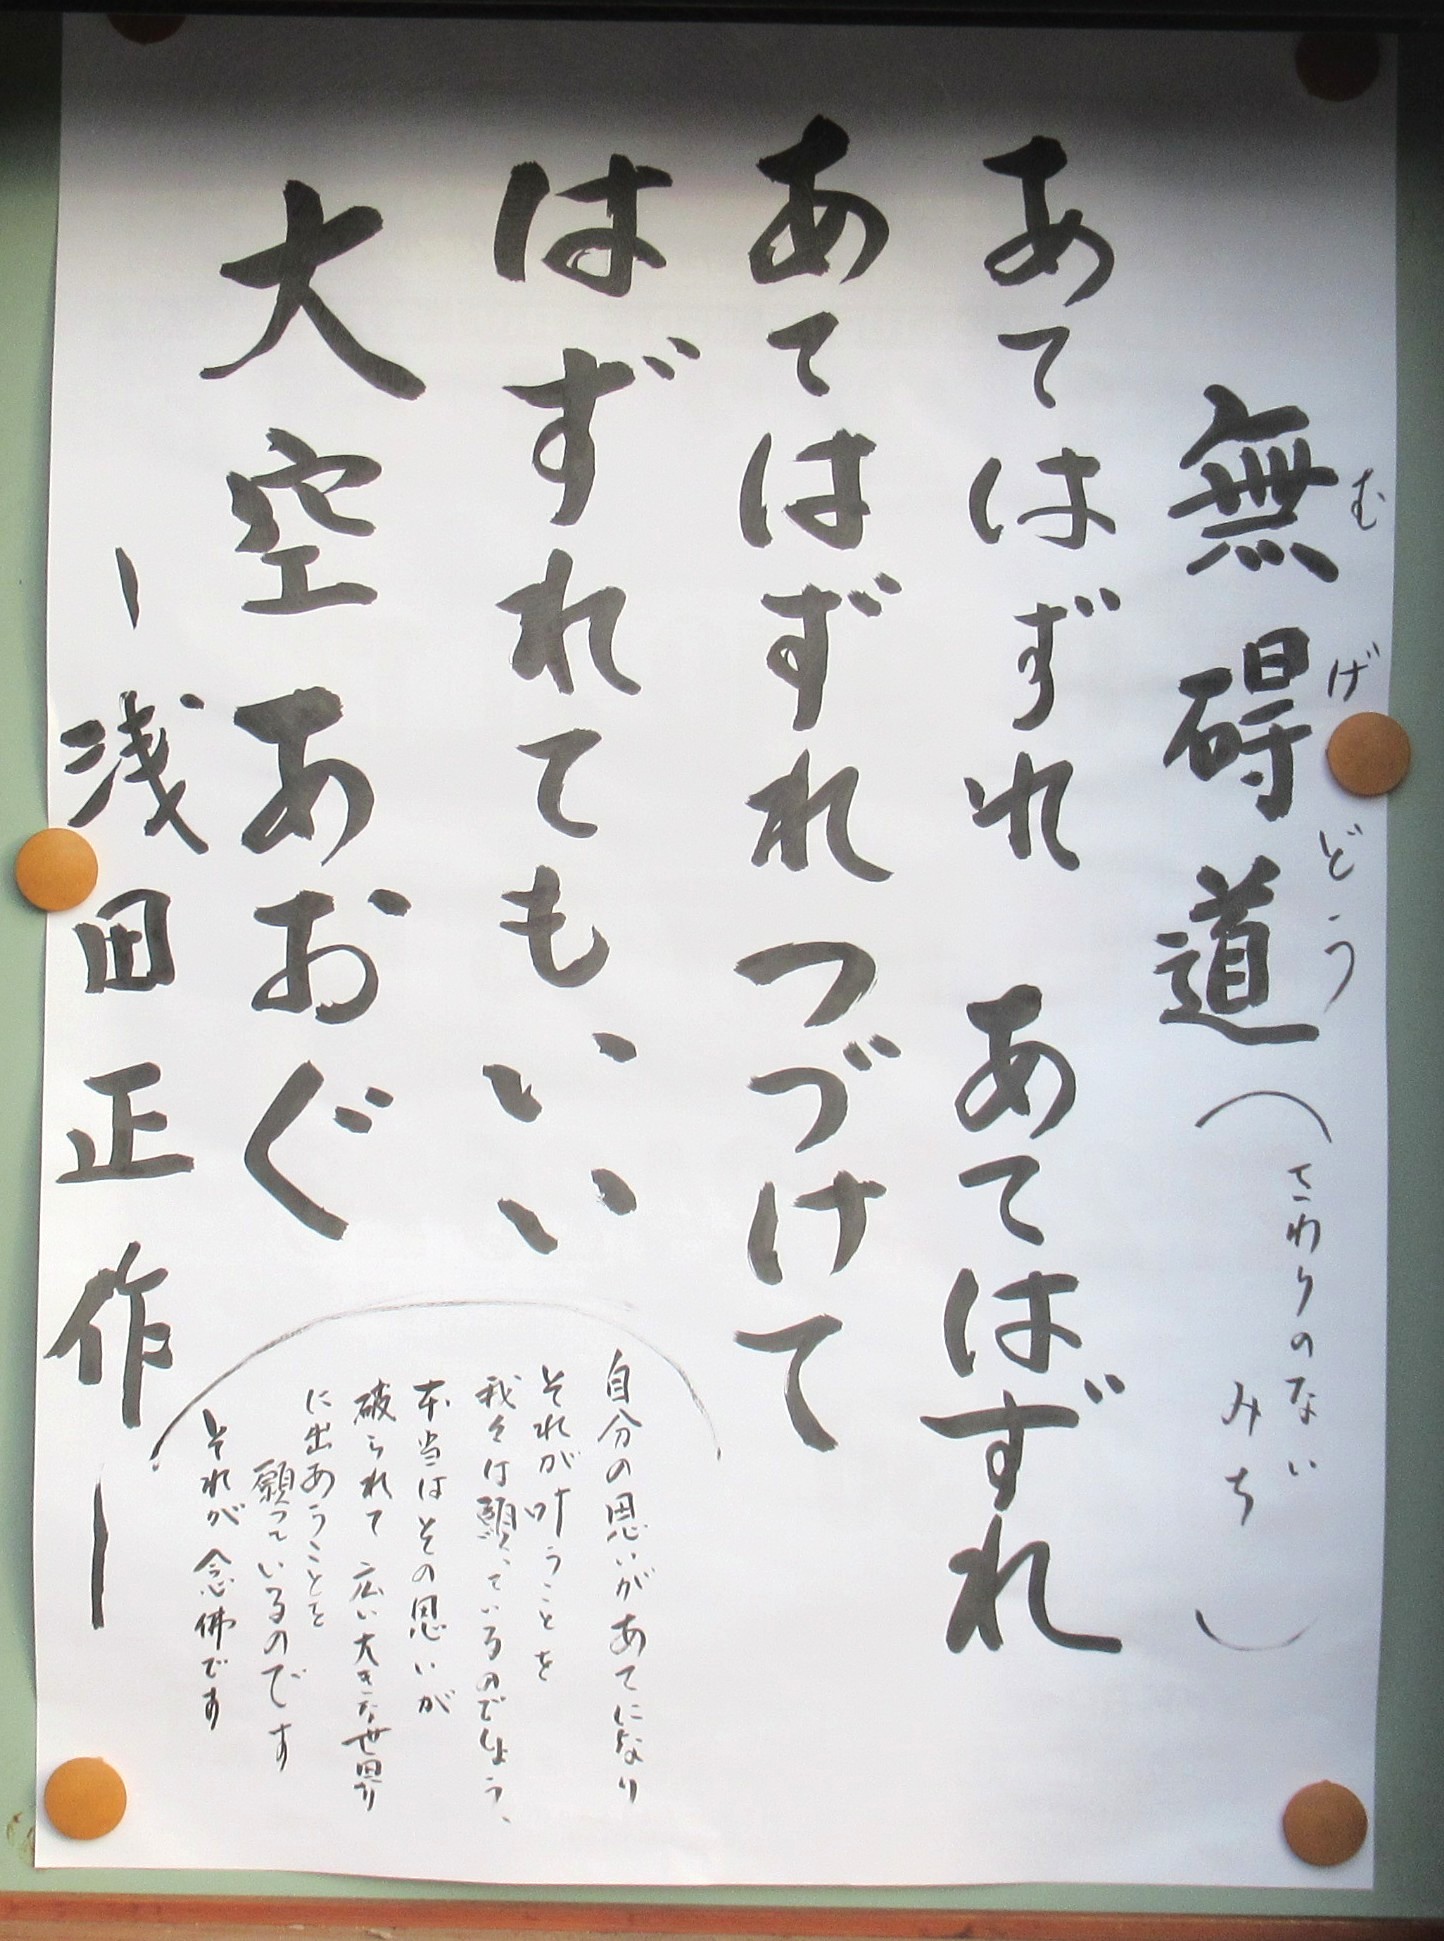 無碍道(さわりのない
みち)
むげどう
あてはずれ あてはずれ
あてはずれつづけて
はずれてもいい
大空あおぐ
ー浅田正作ー
自分の思いがあてになり
それが叶うことを
我々は願っているのでしょう、
本当はその思いが
破られて広い大きな世界
に出あうことを
願っているのです
それが念佛です